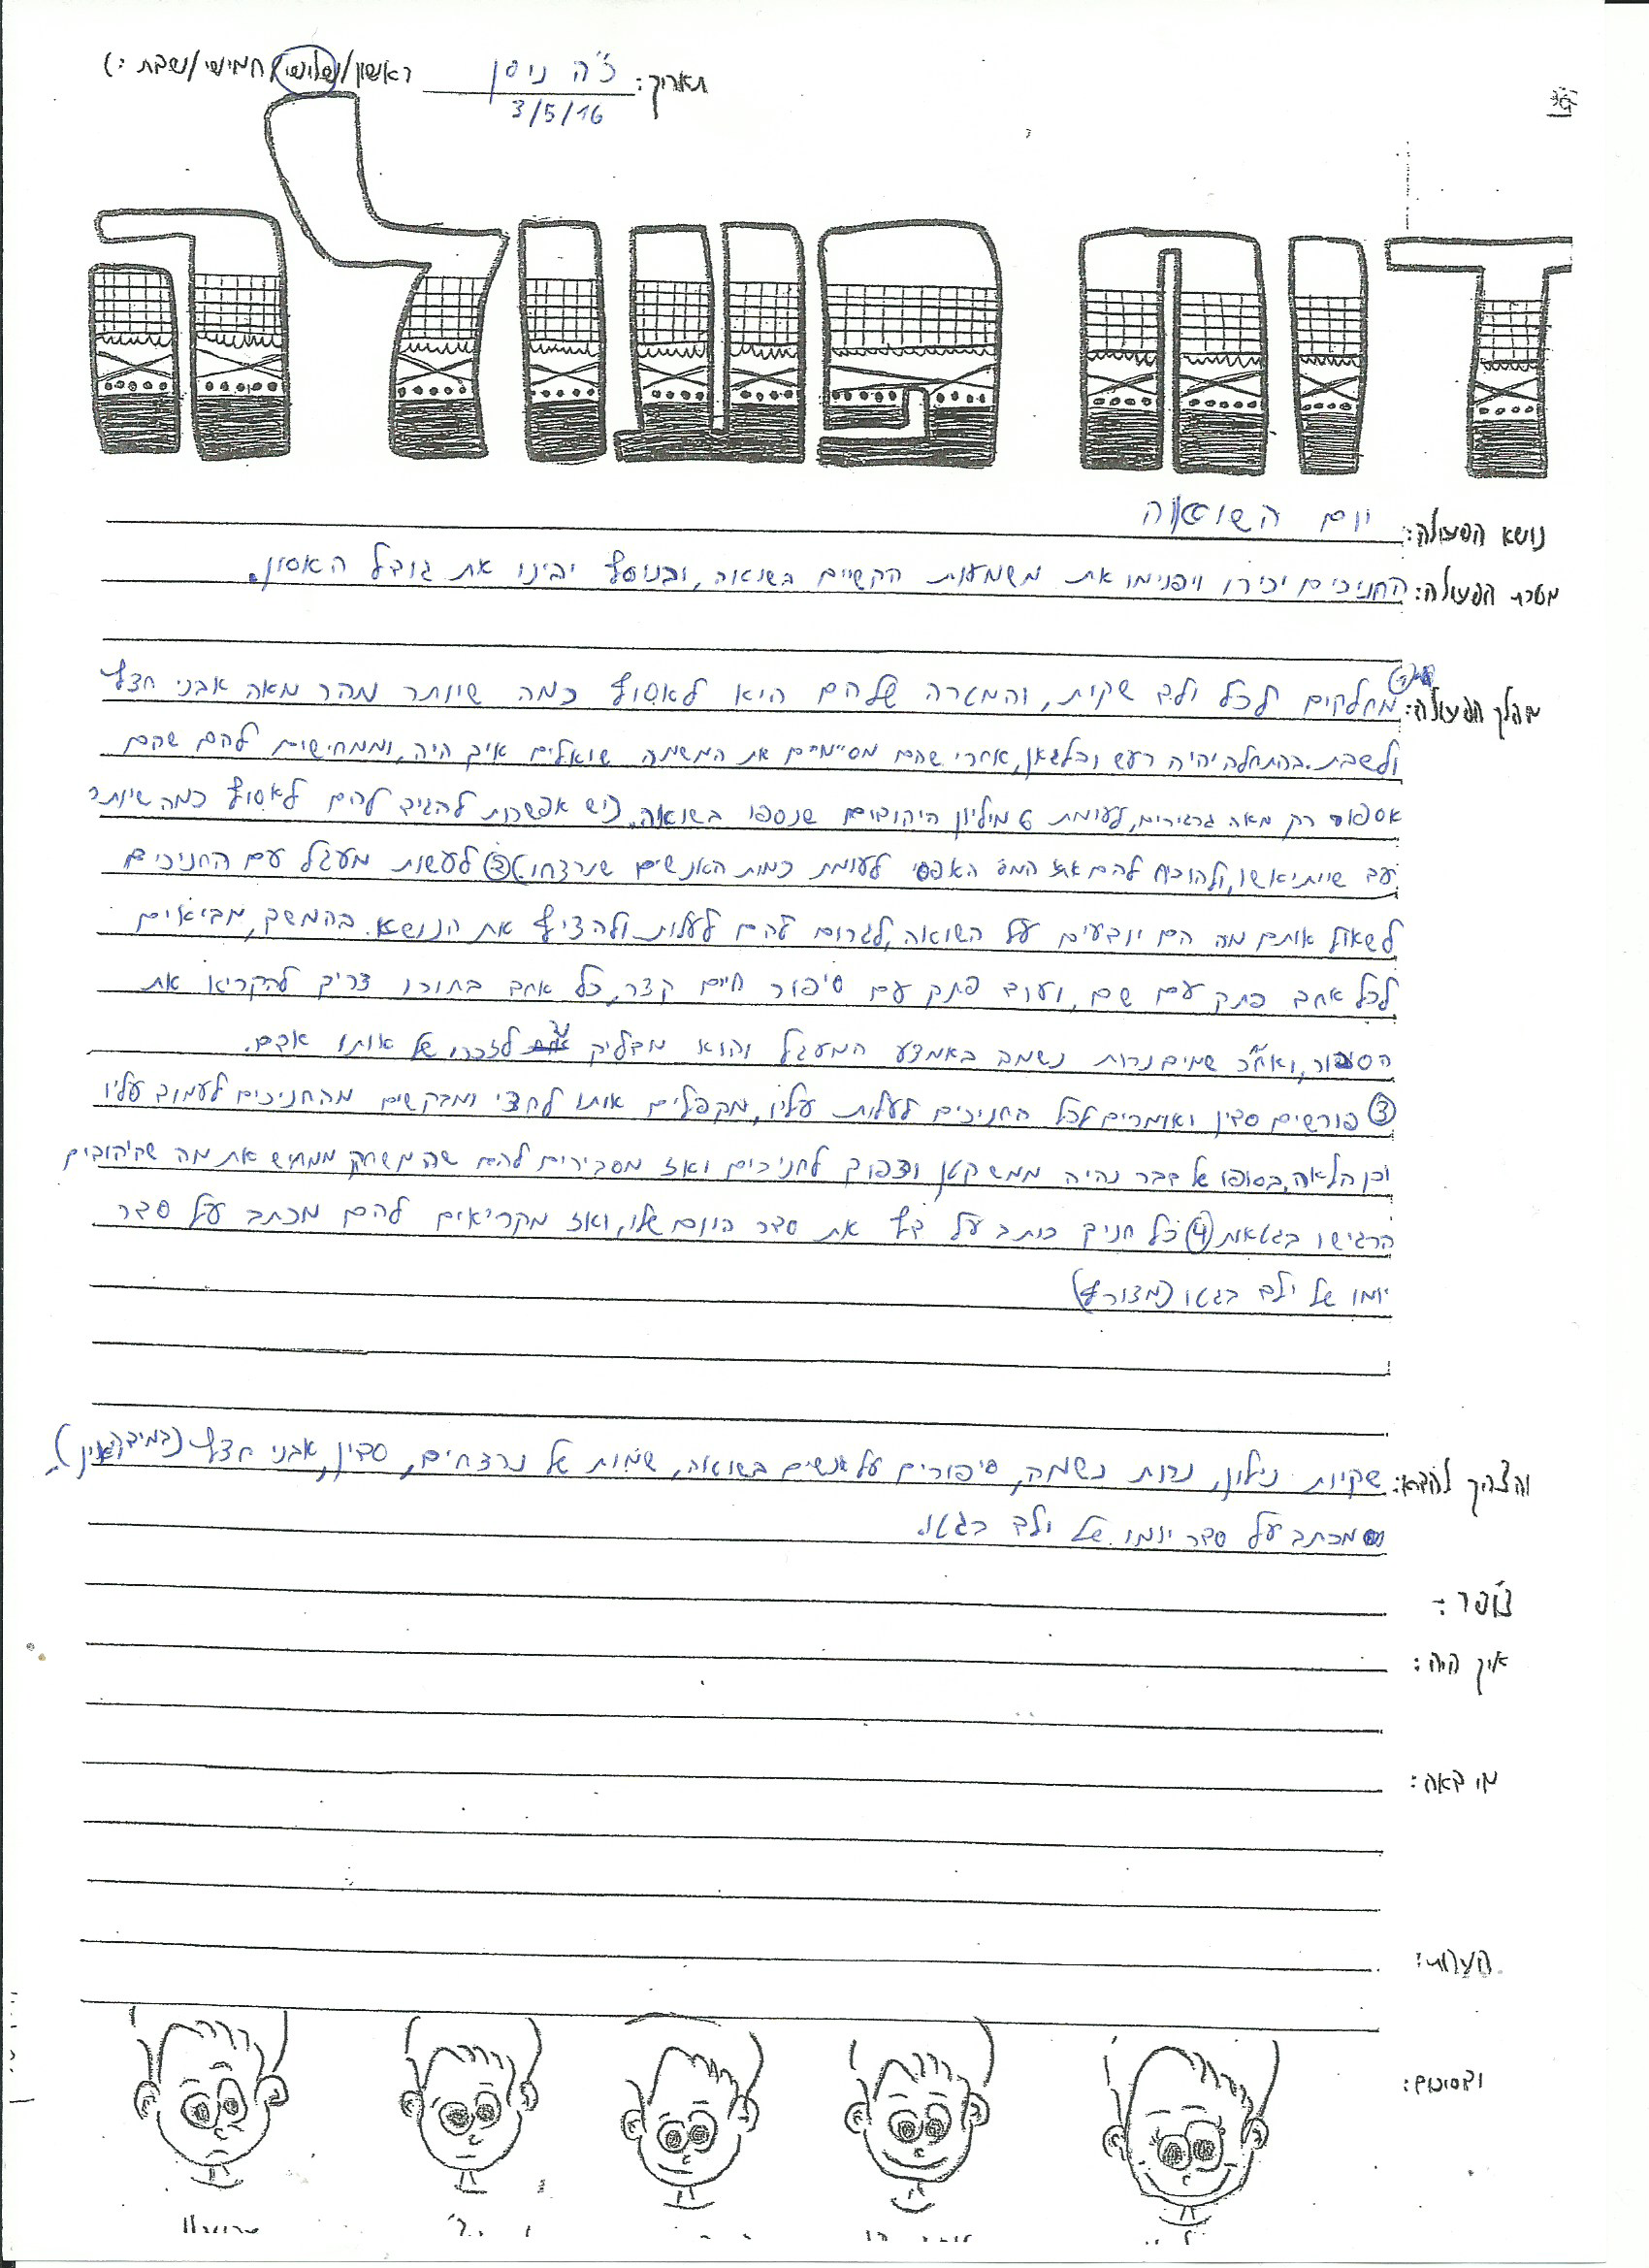 תאריך: כ"ה ניסן ראשון/שלישי/חמישי/שבת :)
3/5/16
דוח פעולה
נושא הפעולה: יום השואה
מטרת הפעולה: החניכים יכירו ויפנימו את משמעות הקשיים בשואה, ובנוסף יבינו את גודל האסון.
מהלך הפעולה: ① מחלקים לכל ילד שקית, והמטרה שלהם היא לאסוף כמה שיותר מהר מאה אבני חצץ
ולשבת. בהתחלה יהיה רעש ובלגאן, אחרי שהם מסיימים את המשימה שואלים איך היה, וממחישים להם שהם
אספו רק מאה גרגירים, לעומת 6 מיליון היהודים שנספו בשואה. (יש אפשרות להגיד להם לאסוף כמה שיותר
עד שייתיאשו, ולהוכיח להם את המס' האפסי לעומת כמות האנשים שנרצחו) ② לעשות מעגל עם החניכים
לשאול אותם מה הם יודעים על השואה, לגרום להם לעלות ולהציף את הנושא. בהמשך, מביאים
לכל אחד פתק עם שם, ועוד פתק עם סיפור חיים קצר, כל אחד בתורו צריך להקריא את
הסיפור, ואח"כ שמים נרות נשמה באמצע המעגל והוא מדליק נר לזכרו של אותו אדם.
③ פורשים סדין ואומרים לכל החניכים לעלות עליו, מקפלים אותו לחצי ומבקשים מהחניכים לעמוד עליו
וכן הלאה, בסופו של דבר נהיה ממש קטן וצפוף לחניכים ואז מסבירים להם שהמשחק ממחיש את מה שהיהודים
הרגישו בגטאות ④ כל חניך כותב על דף את סדר היום שלו, ואז מקריאים להם מכתב על סדר
יומו של ילד בגטו (מצורף)
והצריך להביא: שקיות ניילון, נרות נשמה, סיפורים על אנשים בשואה, שמות של נרצחים, סדין, אבני חצץ (במידה ואין),
מכתב על סדר יומו של ילד בגטו.
צ'ופר :-
איך היה:
מי באה:
הערות:
ולסיכום: